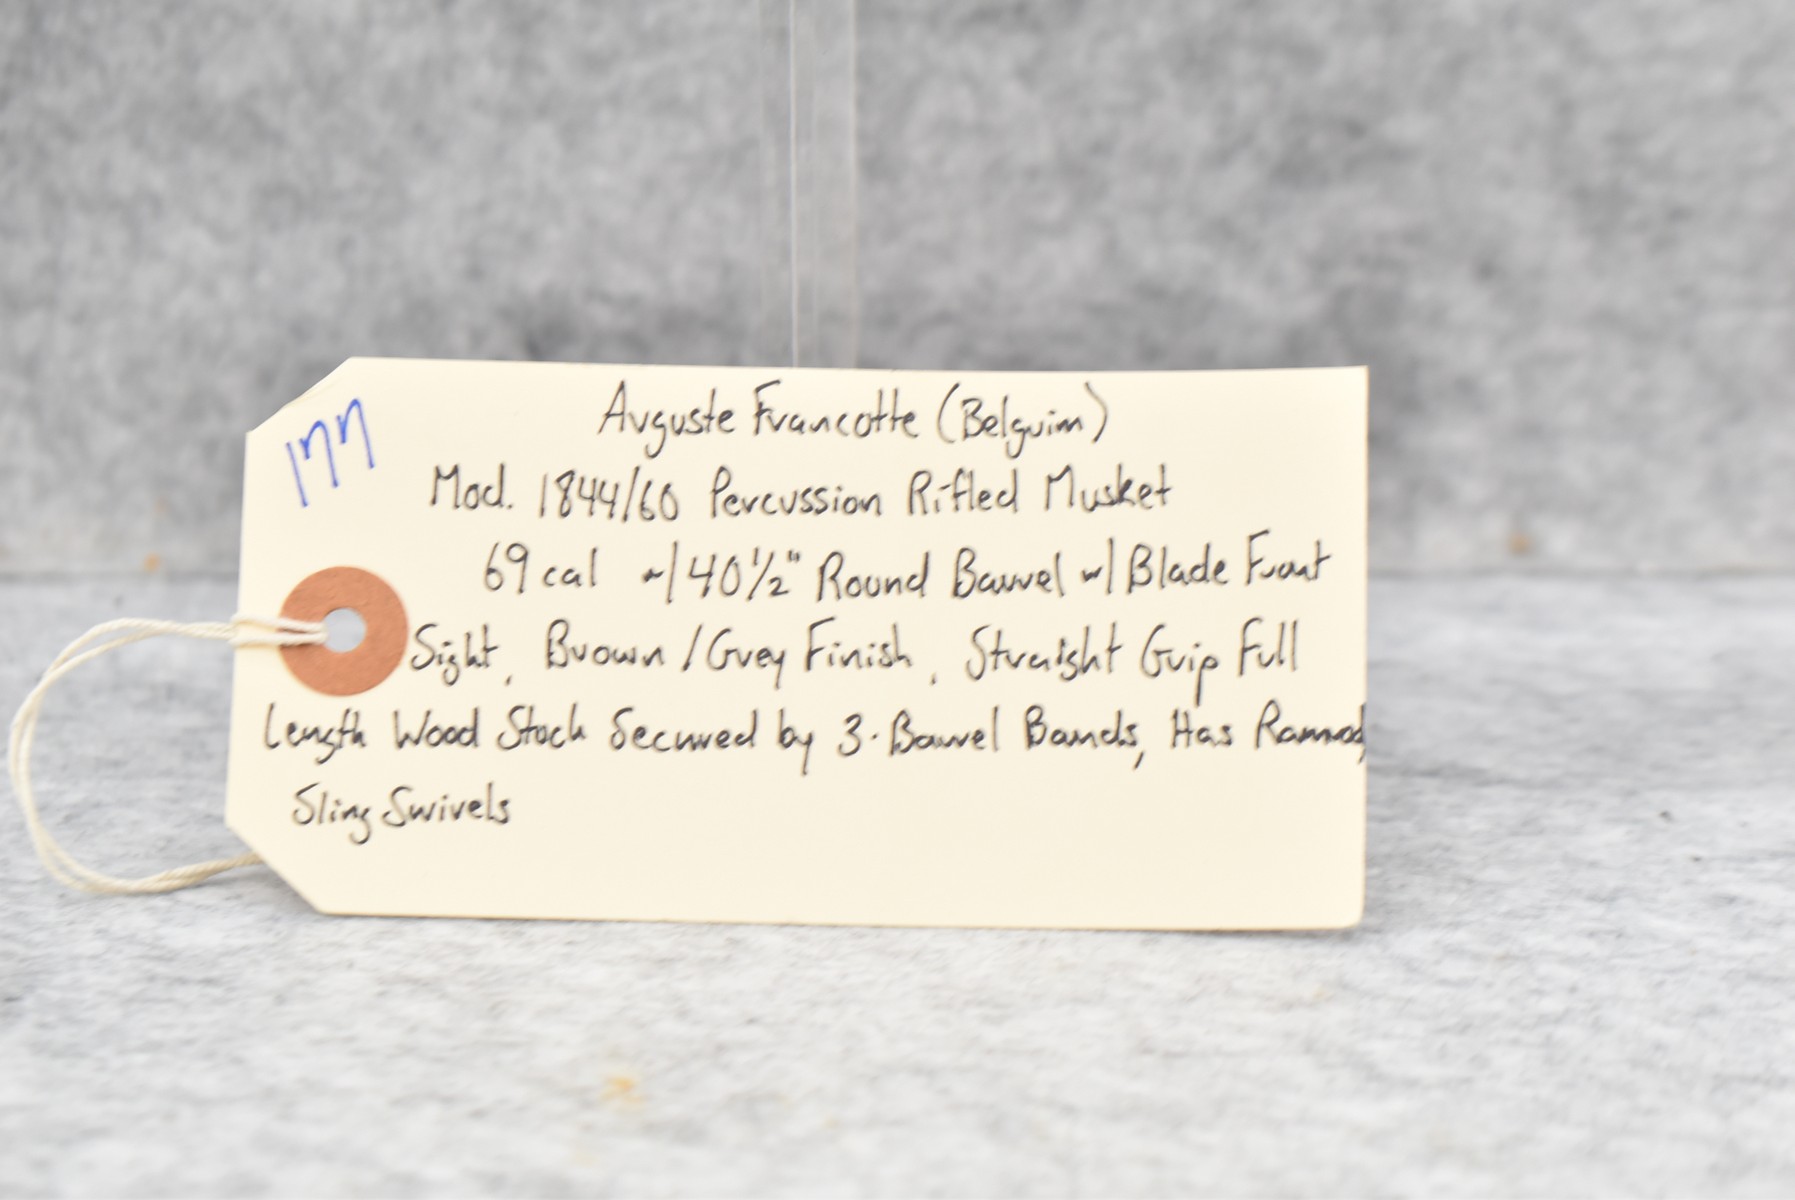 177
Auguste Francotte (Belguim)
Mod. 1844/60 Percussion Rifled Musket
69 cal w/ 40½" Round Barrel w/ Blade Front
Sight, Brown / Grey Finish, Straight Grip Full
Length Wood Stock Secured by 3-Barrel Bands, Has Ramrod,
Sling Swivels